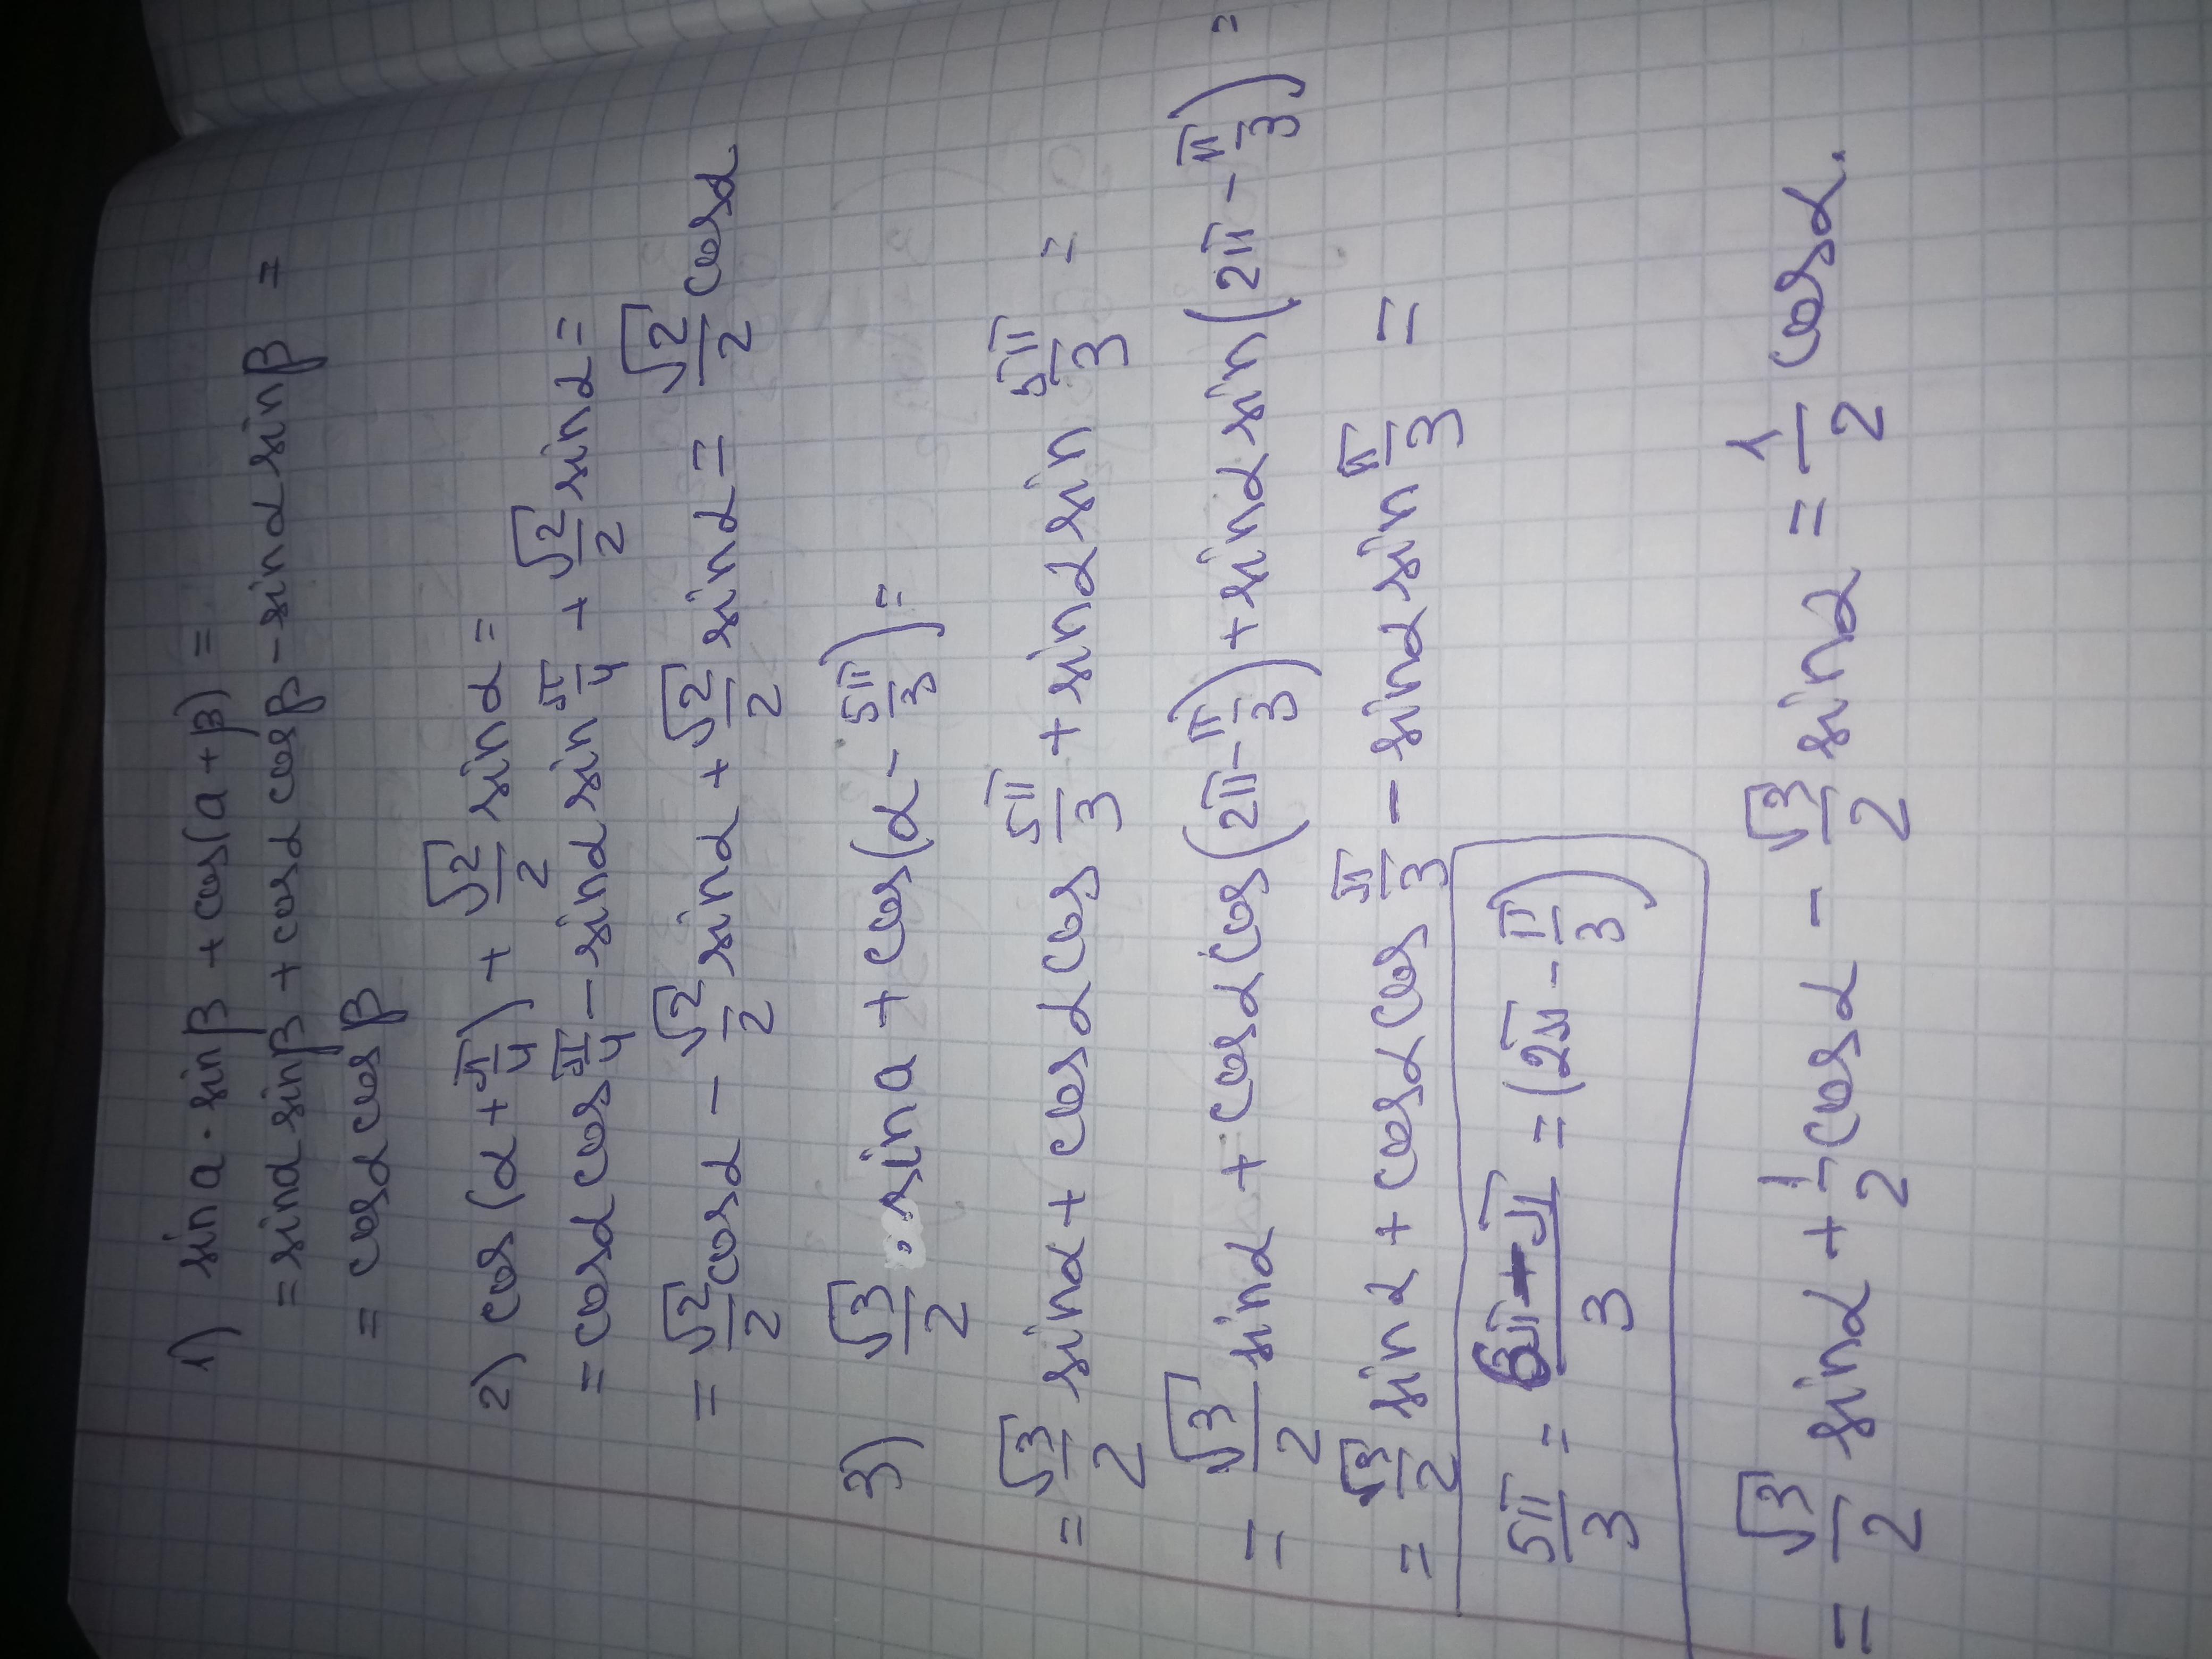 1) sin a · sin β + cos(a + β) =
= sin α sin β + cos α cos β - sin α sin β =
= cos α cos β
2) cos(α + π/4) + √2/2 sin α =
= cos α cos π/4 - sin α sin π/4 + √2/2 sin α =
= √2/2 cos α - √2/2 sin α + √2/2 sin α = √2/2 cos α
3) √3/2 · sin a + cos(α - 5π/3) =
= √3/2 sin α + cos α cos 5π/3 + sin α sin 5π/3 =
= √3/2 sin α + cos α cos(2π - π/3) + sin α sin(2π - π/3) =
= √3/2 sin α + cos α cos π/3 - sin α sin π/3 =
5π/3 = (6π - π)/3 = (2π - π/3)
= √3/2 sin α + 1/2 cos α - √3/2 sin α = 1/2 cos α.